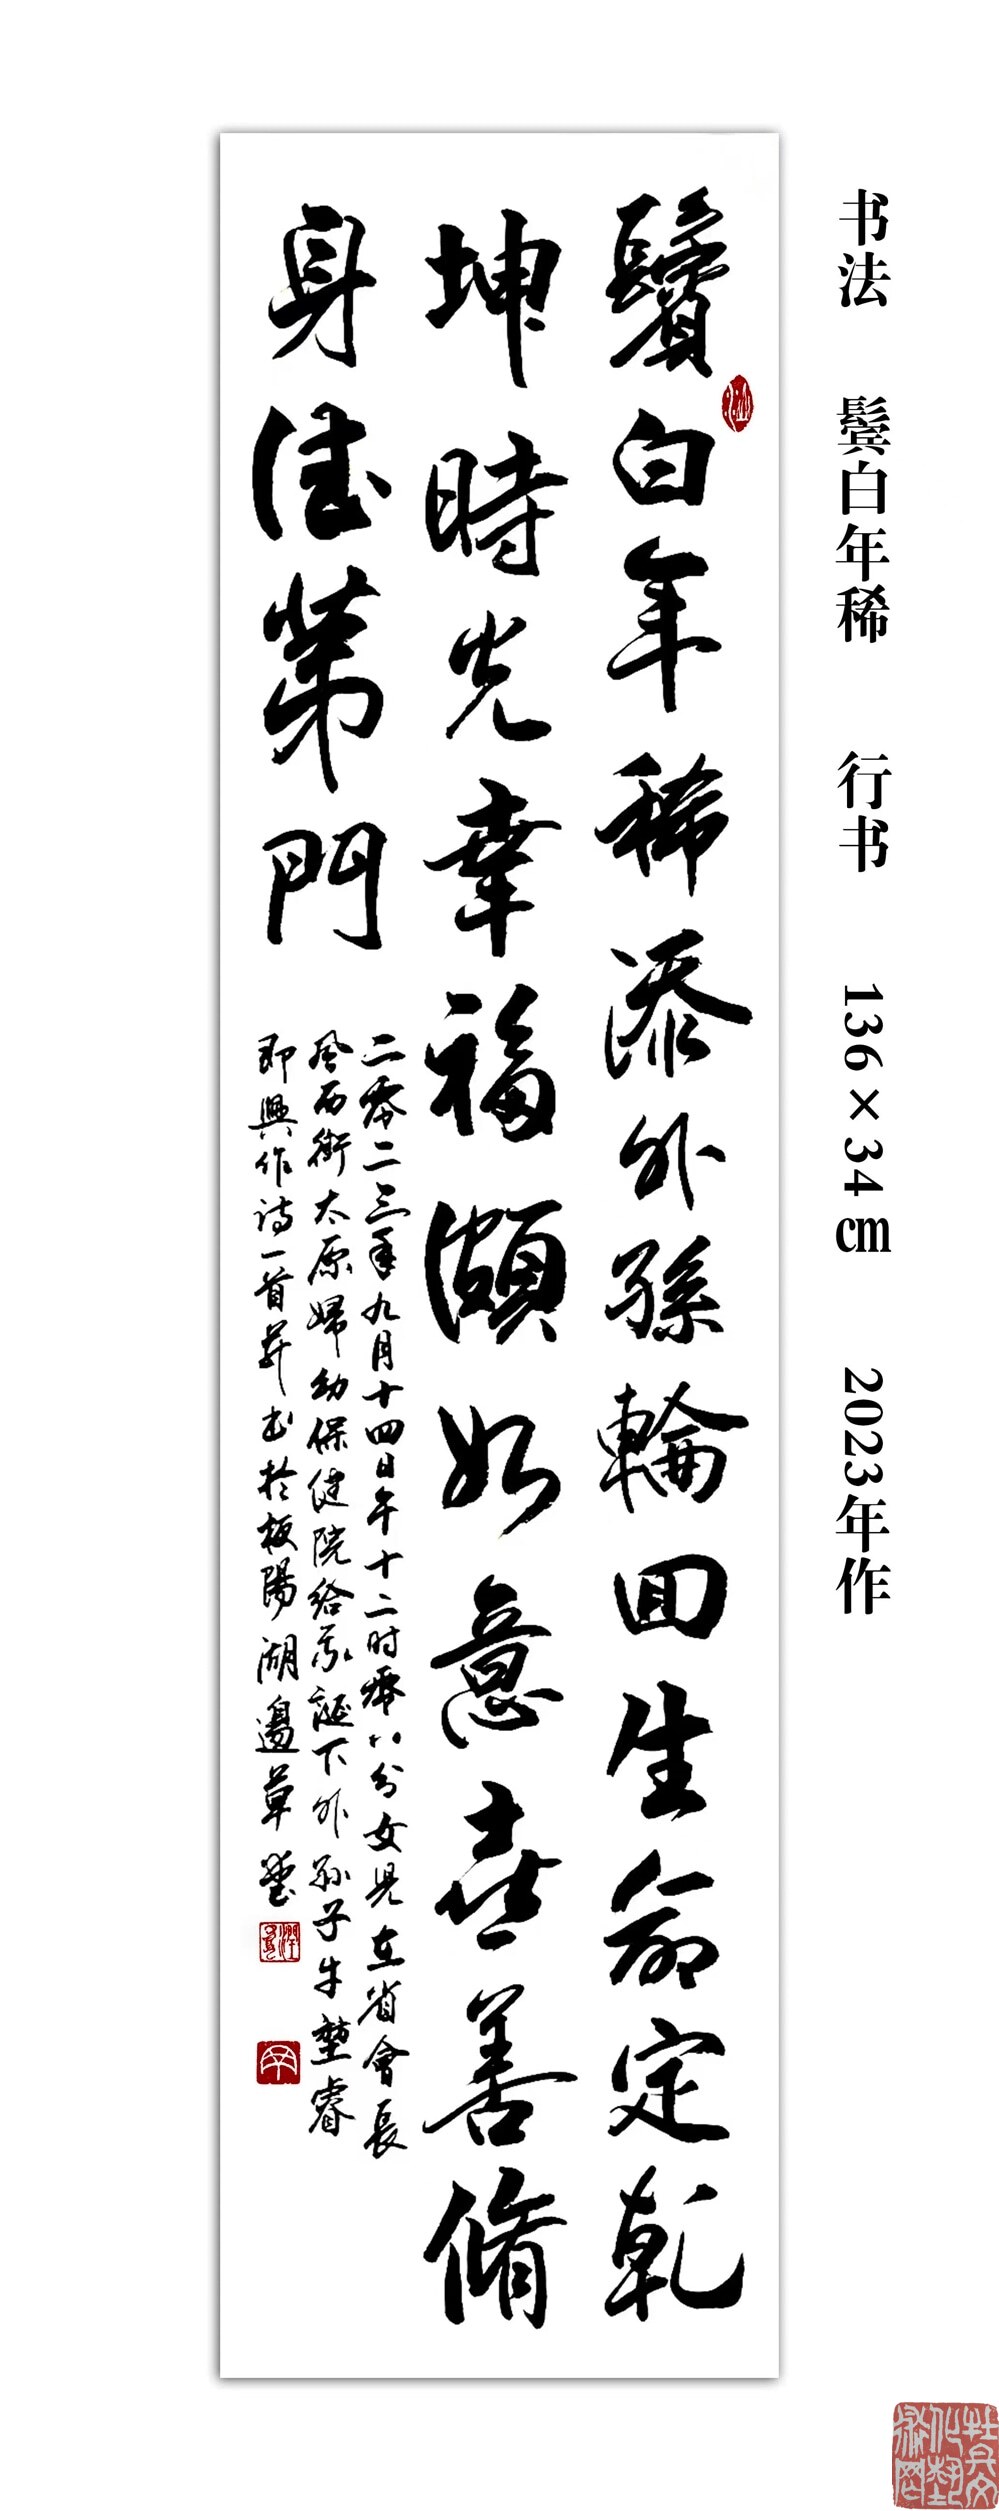 书法 鬓白年稀 行书 136×34cm 2023年作
鬢白年稀添外孫輪回生命定乾
坤時光幸福頤如意喜善脩
身佳第門
二零二三年九月十四日午十二时零八分女児在省會長
风西街太原婦幼保健院给我诞下外孙子牛堃睿
即興作诗一首并书於板陽湖邉草堂